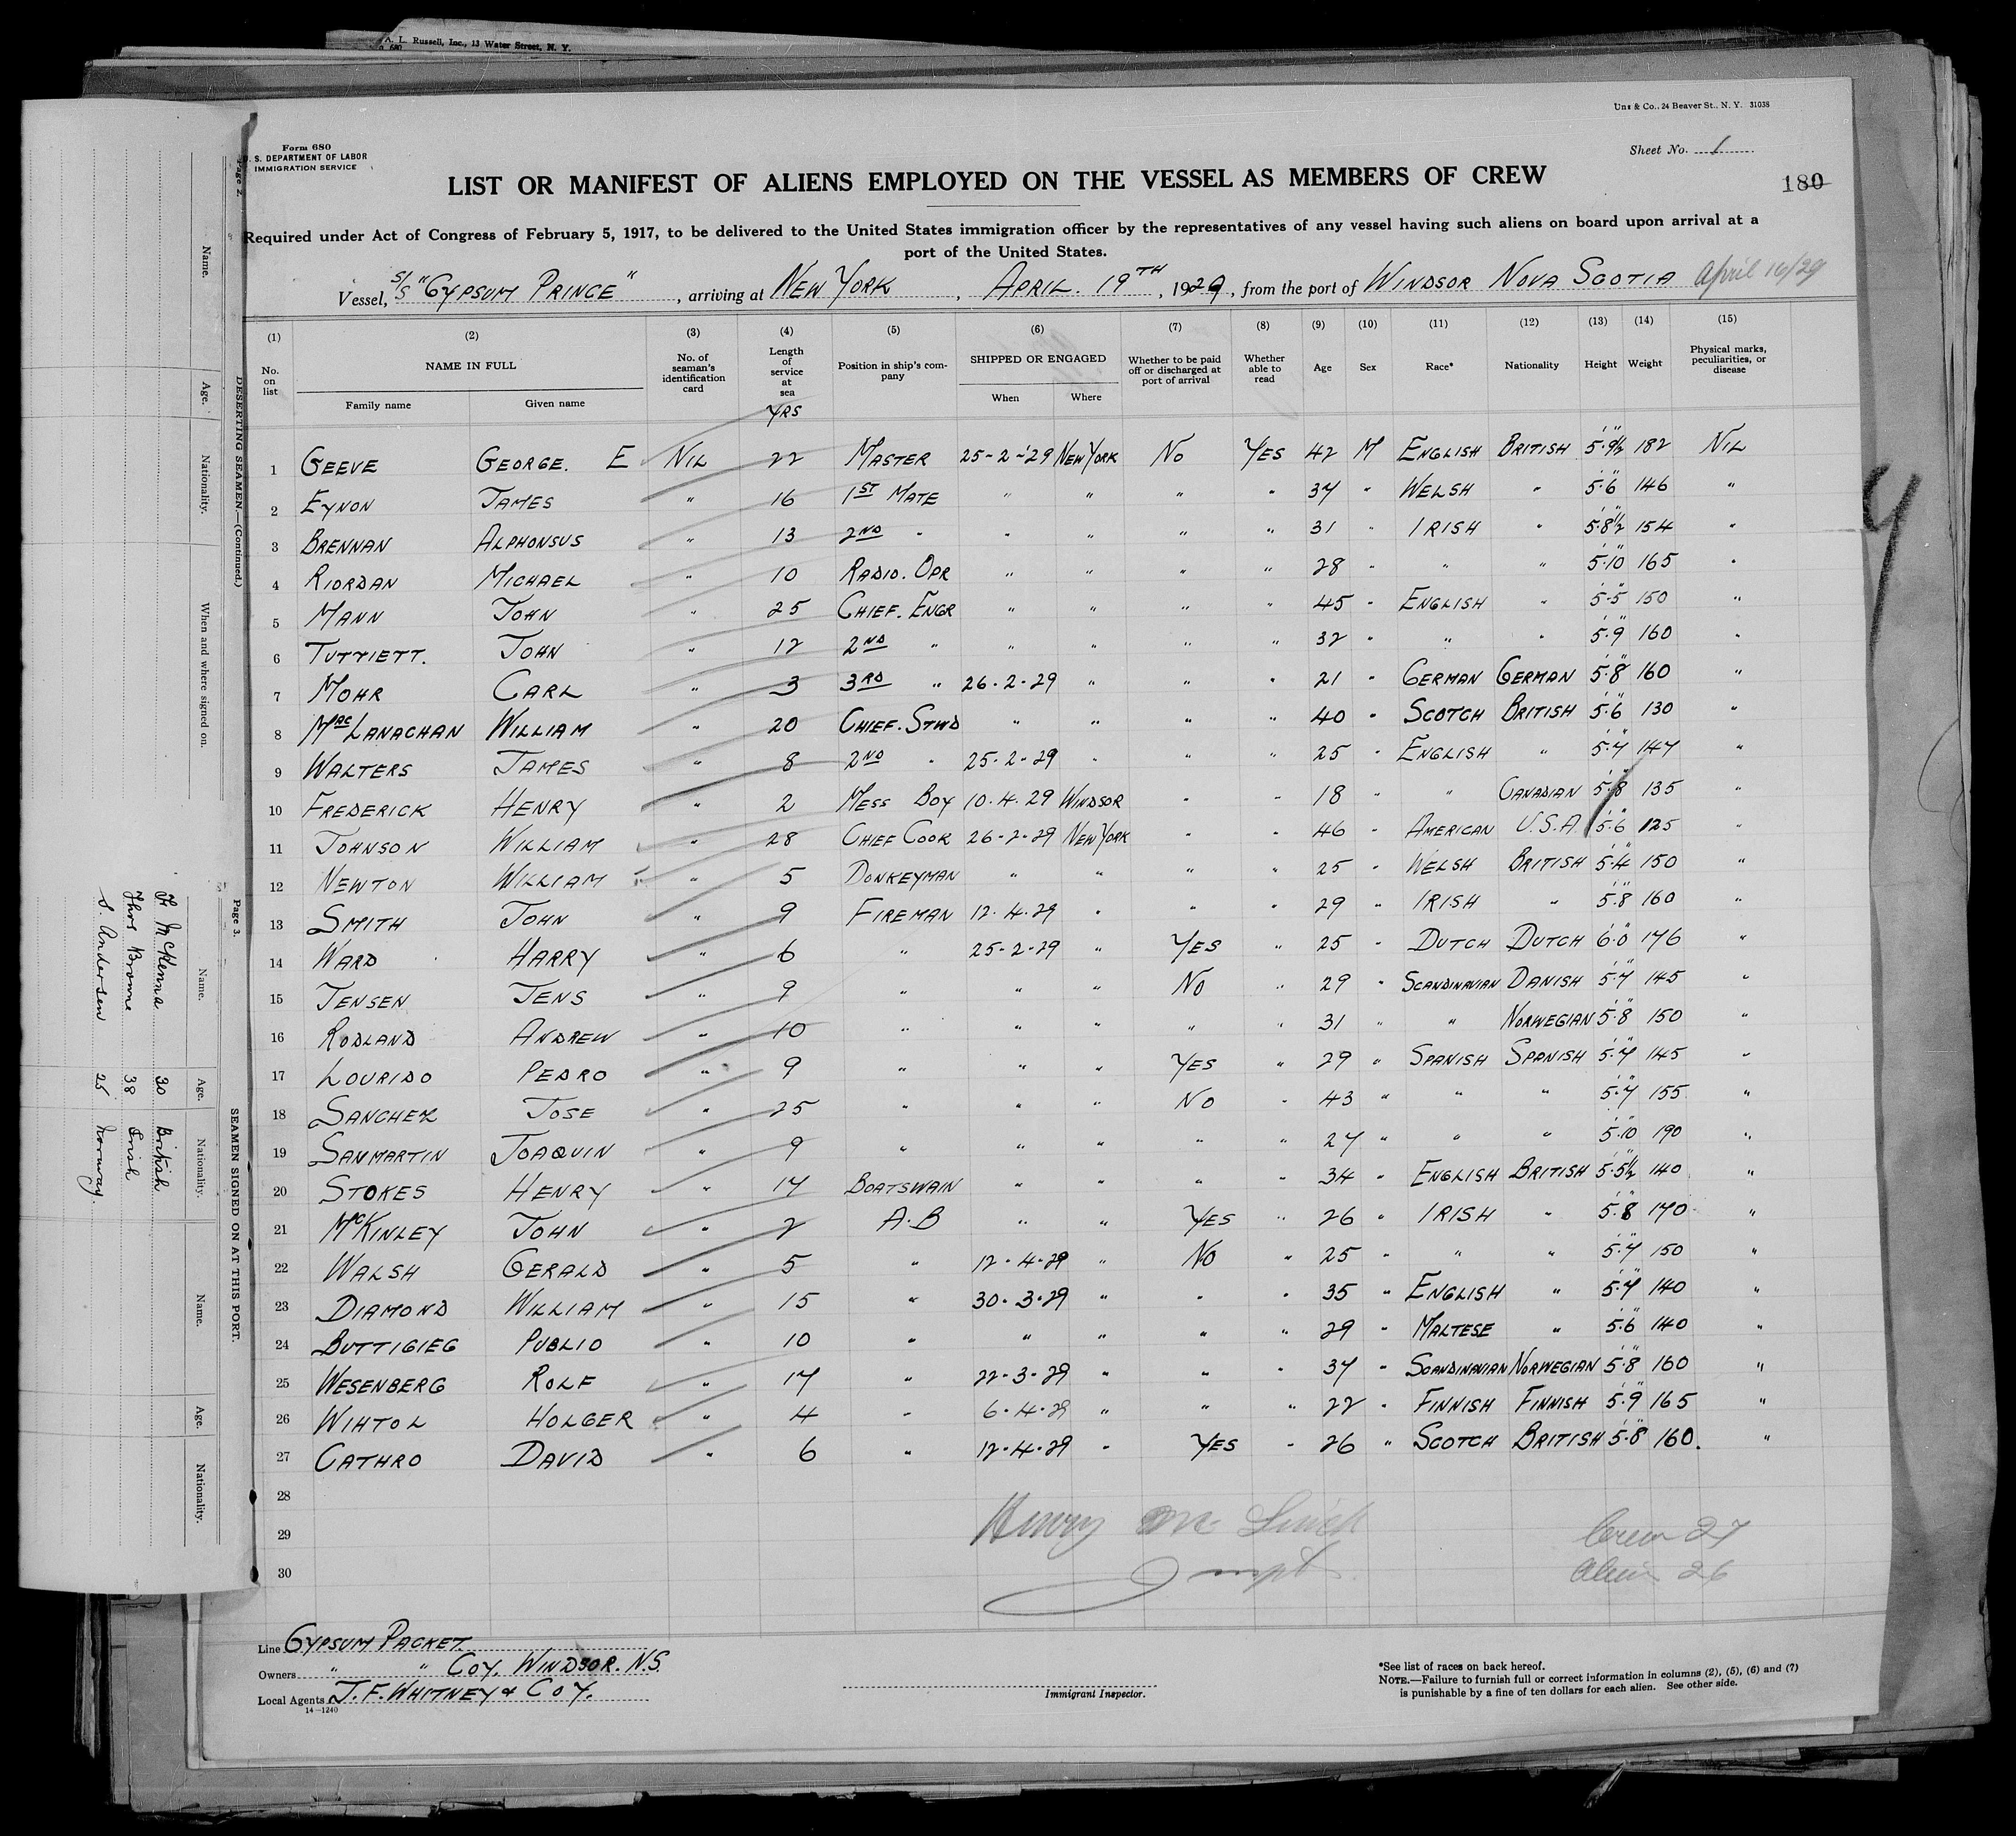 A. L. Russell, Inc., 13 Water Street, N. Y.
680
Une & Co., 24 Beaver St., N. Y. 31038
Form 680
U. S. DEPARTMENT OF LABOR
IMMIGRATION SERVICE
Sheet No. 1
LIST OR MANIFEST OF ALIENS EMPLOYED ON THE VESSEL AS MEMBERS OF CREW
180
Required under Act of Congress of February 5, 1917, to be delivered to the United States immigration officer by the representatives of any vessel having such aliens on board upon arrival at a
port of the United States.
Vessel, S/S "GYPSUM PRINCE", arriving at NEW YORK, APRIL. 19TH, 1929, from the port of WINDSOR NOVA SCOTIA April 16/29
(1) (2) (3) (4) (5) (6) (7) (8) (9) (10) (11) (12) (13) (14) (15)
No. on list NAME IN FULL Family name Given name No. of seaman's identification card Length of service at sea YRS Position in ship's company SHIPPED OR ENGAGED When Where Whether to be paid off or discharged at port of arrival Whether able to read Age Sex Race* Nationality Height Weight Physical marks, peculiarities, or disease
1 GEEVE GEORGE. E NIL 22 MASTER 25-2-'29 NEW YORK NO YES 42 M ENGLISH BRITISH 5'.9½" 182 NIL
2 EYNON JAMES " 16 1ST MATE " " " " 37 " WELSH " 5'.6" 146 "
3 BRENNAN ALPHONSUS " 13 2ND " " " " " 31 " IRISH " 5'.8½" 154 "
4 RIORDAN MICHAEL " 10 RADIO. OPR " " " " 28 " " " 5'.10" 165 "
5 MANN JOHN " 25 CHIEF. ENGR " " " " 45 " ENGLISH " 5'.5" 150 "
6 TUTTIETT. JOHN " 12 2ND " " " " " 32 " " " 5'.9" 160 "
7 MOHR CARL " 3 3RD " 26.2.29 " " " 21 " GERMAN GERMAN 5'.8" 160 "
8 MACLANACHAN WILLIAM " 20 CHIEF. STWD " " " " 40 " SCOTCH BRITISH 5'.6" 130 "
9 WALTERS JAMES " 8 2ND " 25.2.29 " " " 25 " ENGLISH " 5'.7" 147 "
10 FREDERICK HENRY " 2 MESS BOY 10.4.29 WINDSOR " " 18 " " CANADIAN 5'.8" 135 "
11 JOHNSON WILLIAM " 28 CHIEF COOK 26-2-29 NEW YORK " " 46 " AMERICAN U.S.A. 5'.6" 125 "
12 NEWTON WILLIAM " 5 DONKEYMAN " " " " 25 " WELSH BRITISH 5'.4" 150 "
13 SMITH JOHN " 9 FIREMAN 12.4.29 " " " 29 " IRISH " 5'.8" 160 "
14 WARD HARRY " 6 " 25-2-29 " YES " 25 " DUTCH DUTCH 6'.0" 176 "
15 JENSEN JENS " 9 " " " NO " 29 " SCANDINAVIAN DANISH 5'.7" 145 "
16 RODLAND ANDREW " 10 " " " " " 31 " " NORWEGIAN 5'.8" 150 "
17 LOURIDO PEDRO " 9 " " " YES " 29 " SPANISH SPANISH 5'.7" 145 "
18 SANCHEZ JOSE " 25 " " " NO " 43 " " " 5'.7" 155 "
19 SANMARTIN JOAQUIN " 9 " " " " " 27 " " " 5'.10" 190 "
20 STOKES HENRY " 17 BOATSWAIN " " " " 34 " ENGLISH BRITISH 5'.5½" 140 "
21 McKINLEY JOHN " 2 A.B " " YES " 26 " IRISH " 5'.8" 170 "
22 WALSH GERALD " 5 " 12.4.29 " NO " 25 " " " 5'.7" 150 "
23 DIAMOND WILLIAM " 15 " 30.3.29 " " " 35 " ENGLISH " 5'.7" 140 "
24 BUTTIGIEG PUBLIO " 10 " " " " " 29 " MALTESE " 5'.6" 140 "
25 WESENBERG ROLF " 17 " 22-3-29 " " " 37 " SCANDINAVIAN NORWEGIAN 5'.8" 160 "
26 WIHTOL HOLGER " 4 " 6.4.29 " " " 22 " FINNISH FINNISH 5'.9" 165 "
27 CATHRO DAVID " 6 " 12.4.29 " YES " 26 " SCOTCH BRITISH 5'.8" 160. "
28
29 Henry
30
Crew 27
Alien 26
Line GYPSUM PACKET.
Owners " " COY. WINDSOR. N.S.
Local Agents J. F. WHITNEY & COY.
14—1240
Immigrant Inspector.
*See list of races on back hereof.
NOTE.—Failure to furnish full or correct information in columns (2), (5), (6) and (7)
is punishable by a fine of ten dollars for each alien. See other side.
Page 2.
DESERTING SEAMEN.—(Continued.)
Name. Age. Nationality. When and where signed on.
Page 3.
SEAMEN SIGNED ON AT THIS PORT.
Name. Age. Nationality. Name. Age. Nationality.
F. McKenna 30 British
Thos Browne 38 Irish
S. Andersen 25 Norway.